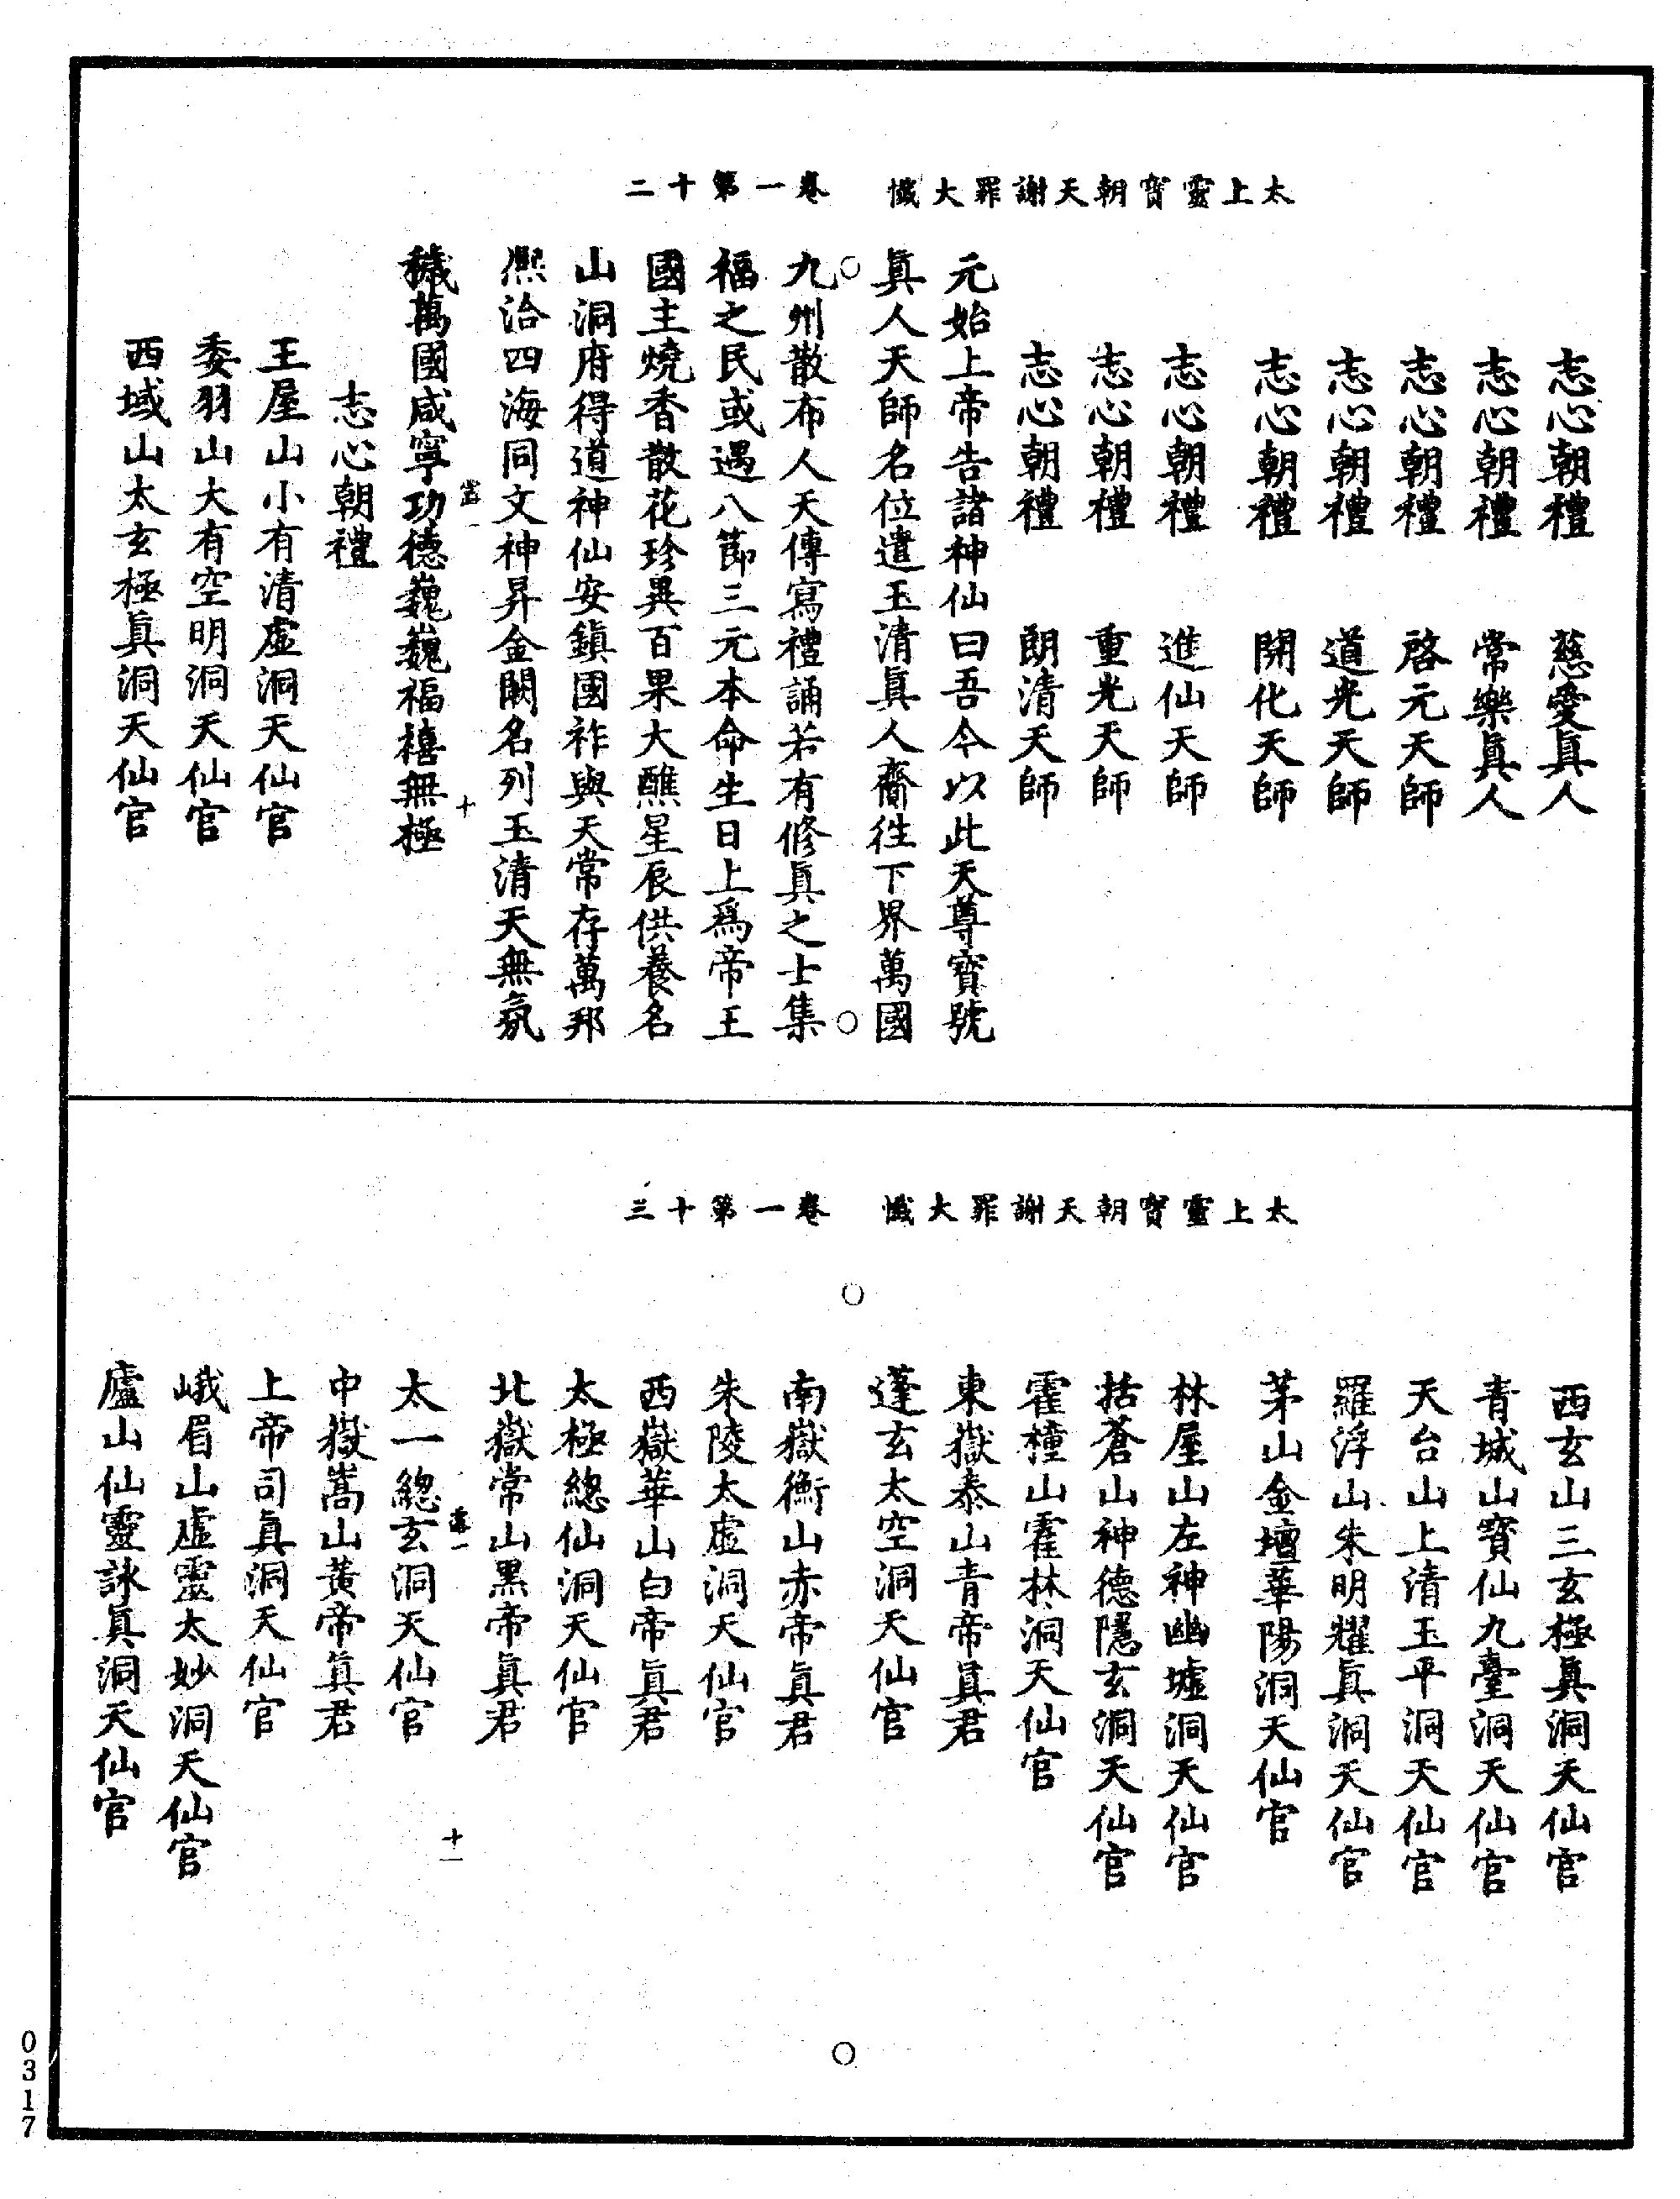 太上靈寶朝天謝罪大懺　卷一第十二
志心朝禮　慈愛真人
志心朝禮　常樂真人
志心朝禮　啓元天師
志心朝禮　道光天師
志心朝禮　開化天師
志心朝禮　進仙天師
志心朝禮　重光天師
志心朝禮　朗清天師
元始上帝告諸神仙曰吾今以此天尊寳號
眞人天師名位遣玉清眞人齎徃下界萬國
九州散布人天傳寫禮誦若有修眞之士集
福之民或遇八節三元本命生日上爲帝王
國主燒香散花珍異百果大醮星辰供養名
山洞府得道神仙安鎮國祚與天常存萬邦
熈洽四海同文神昇金闕名列玉清天無氛
穢萬國咸寧功德巍巍福禧無極
十
志心朝禮
王屋山小有清虛洞天仙官
委羽山大有空明洞天仙官
西域山太玄極眞洞天仙官
太上靈寳朝天謝罪大懺　卷一第十三
西玄山三玄極眞洞天仙官
青城山寳仙九臺洞天仙官
天台山上清玉平洞天仙官
羅浮山朱明耀眞洞天仙官
茅山金壇華陽洞天仙官
林屋山左神幽墟洞天仙官
括蒼山神德隱玄洞天仙官
霍橦山霍林洞天仙官
東嶽泰山青帝眞君
蓬玄太空洞天仙官
南嶽衡山赤帝眞君
朱陵太虛洞天仙官
西嶽華山白帝眞君
太極總仙洞天仙官
北嶽常山黑帝眞君
太一總玄洞天仙官
十一
中嶽嵩山黃帝眞君
上帝司眞洞天仙官
峨眉山虛靈太妙洞天仙官
廬山仙靈詠眞洞天仙官
0317